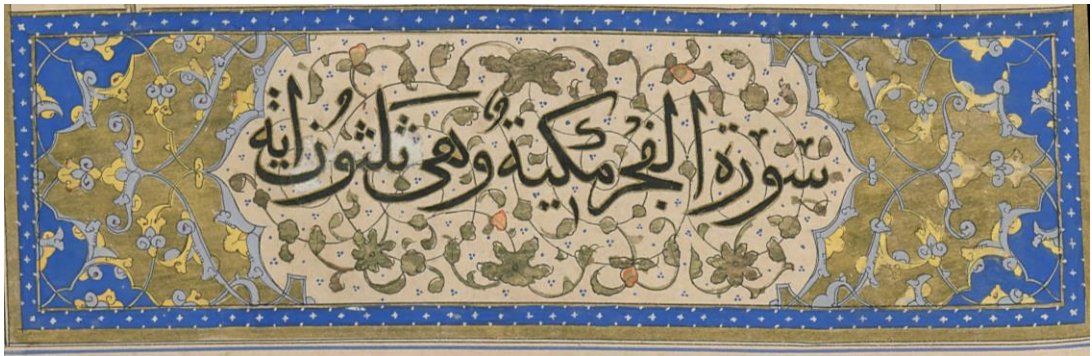 سورة الفجر مكية وهى ثلثون اية